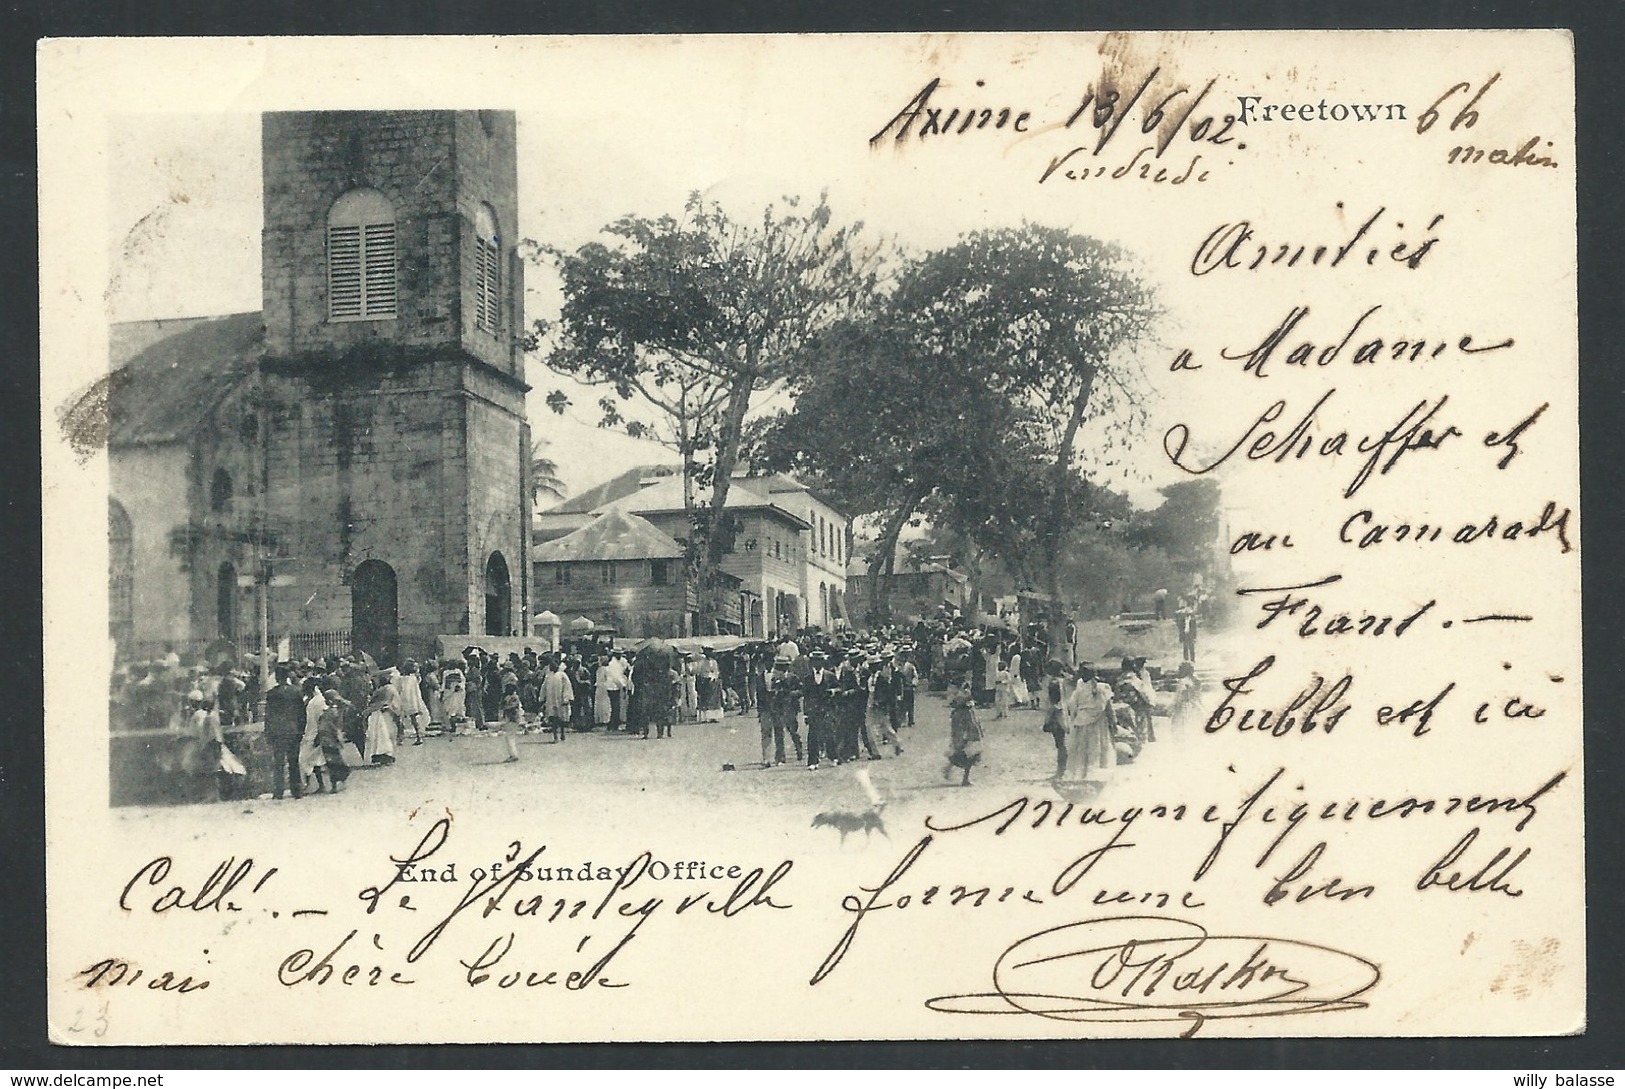 Axime 13/6/02. Freetown 6h
Vendredi matin
Amitiés
a Madame
Schaffer et
au Camarade
Frant. —
Tubbs est ici
magnifiquement
Callé. — Le Stanleyville forme une bien belle
End of Sunday Office
mais chère bouée
23
willy balasse